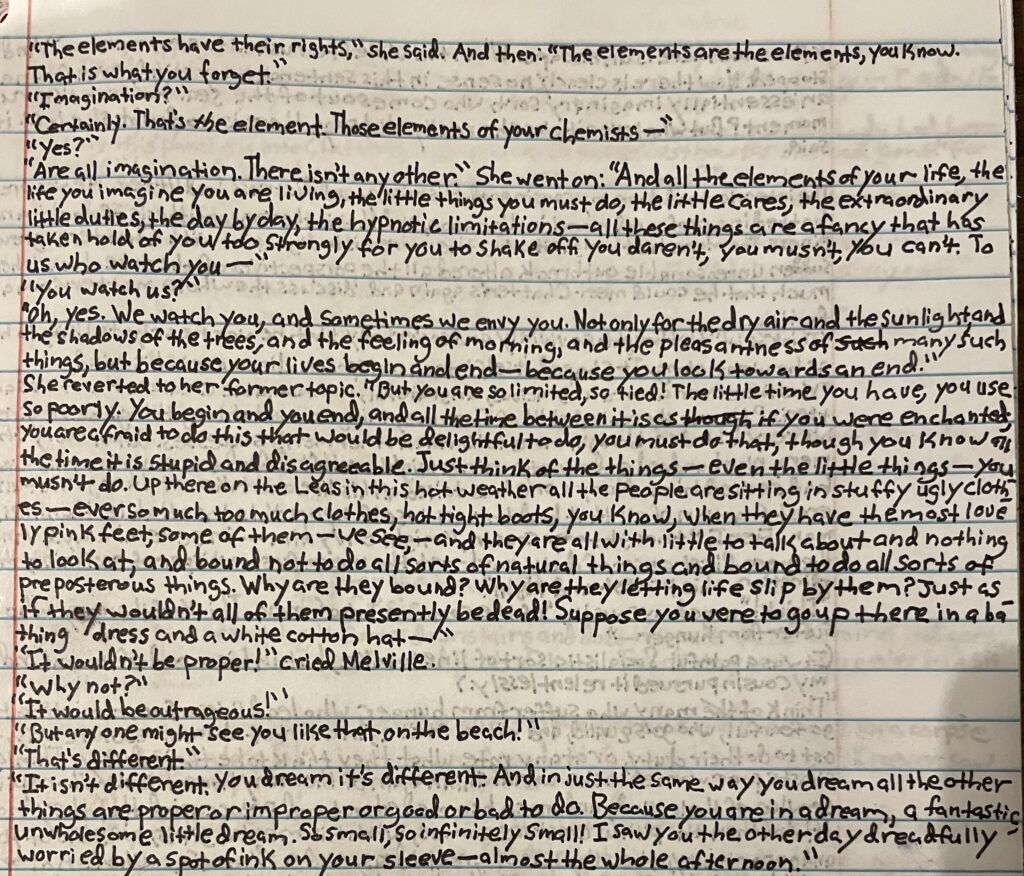 "The elements have their rights," she said. And then: "The elements are the elements, you know.
That is what you forget."
"Imagination?"
"Certainly. That's the element. Those elements of your chemists—"
"Yes?"
"Are all imagination. There isn't any other." She went on: "And all the elements of your life, the
life you imagine you are living, the little things you must do, the little cares, the extraordinary
little duties, the day by day, the hypnotic limitations—all these things are a fancy that has
taken hold of you too strongly for you to shake off. You daren't, you musn't, you can't. To
us who watch you—"
"You watch us?"
"Oh, yes. We watch you, and sometimes we envy you. Not only for the dry air and the sunlight and
the shadows of the trees, and the feeling of morning, and the pleasantness of such many such
things, but because your lives begin and end—because you look towards an end."
She reverted to her former topic. "But you are so limited, so tied! The little time you have, you use
so poorly. You begin and you end, and all the time between it is as though if you were enchanted,
you are afraid to do this that would be delightful to do, you must do that, though you know all
the time it is stupid and disagreeable. Just think of the things—even the little things—you
musn't do. Up there on the Leas in this hot weather all the people are sitting in stuffy ugly cloth-
es—ever so much too much clothes, hot tight boots, you know, when they have the most love
ly pink feet, some of them—we see,—and they are all with little to talk about and nothing
to look at, and bound not to do all sorts of natural things and bound to do all sorts of
preposterous things. Why are they bound? Why are they letting life slip by them? Just as
if they wouldn't all of them presently be dead! Suppose you were to go up there in a ba-
thing dress and a white cotton hat—"
"It wouldn't be proper!" cried Melville.
"Why not?"
"It would be outrageous!"
"But any one might see you like that on the beach!"
"That's different."
"It isn't different. You dream it's different. And in just the same way you dream all the other
things are proper or improper or good or bad to do. Because you are in a dream, a fantastic,
unwholesome little dream. So small, so infinitely small! I saw you the other day dreadfully
worried by a spot of ink on your sleeve—almost the whole afternoon."